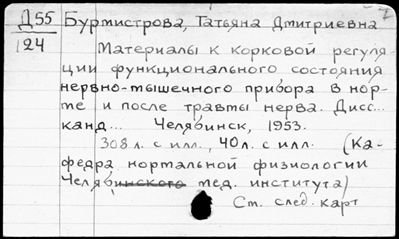 Д55 Бурмистрова, Татьяна Дмитриевна
124
Материалы к корковой регуля-
ции функционального состояния
нервно-мышечного прибора в нор-
те и после травмы нерва. Дисс...
канд... Челябинск, 1953.
308 л. с илл., 40 л. с илл. (Ка-
федра нормальной физиологии
Челябинского мед. института)
См. след. карт